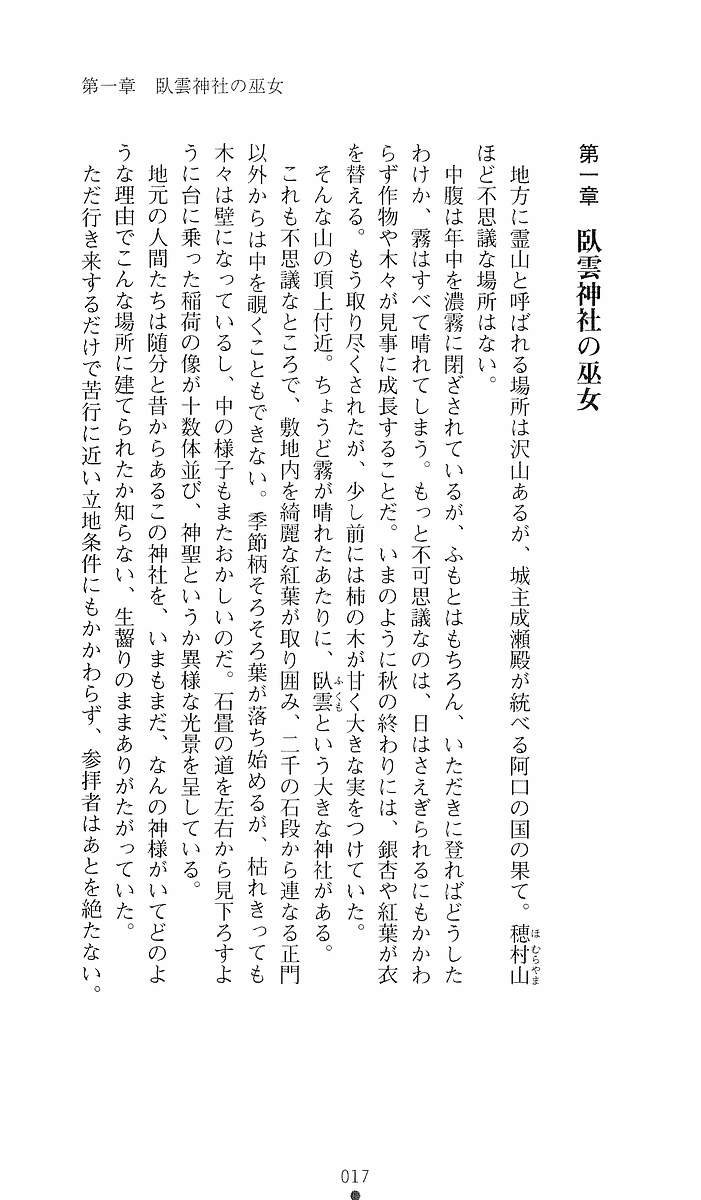 第一章　臥雲神社の巫女
第一章　臥雲神社の巫女
地方に霊山と呼ばれる場所は沢山あるが、城主成瀬殿が統べる阿口の国の果て。穂村山
ほむらやま
ほど不思議な場所はない。
中腹は年中を濃霧に閉ざされているが、ふもとはもちろん、いただきに登ればどうした
わけか、霧はすべて晴れてしまう。もっと不可思議なのは、日はさえぎられるにもかかわ
らず作物や木々が見事に成長することだ。いまのように秋の終わりには、銀杏や紅葉が衣
を替える。もう取り尽くされたが、少し前には柿の木が甘く大きな実をつけていた。
そんな山の頂上付近。ちょうど霧が晴れたあたりに、臥雲という大きな神社がある。
ふくも
これも不思議なところで、敷地内を綺麗な紅葉が取り囲み、二千の石段から連なる正門
以外からは中を覗くこともできない。季節柄そろそろ葉が落ち始めるが、枯れきっても
木々は壁になっているし、中の様子もまたおかしいのだ。石畳の道を左右から見下ろすよ
うに台に乗った稲荷の像が十数体並び、神聖というか異様な光景を呈している。
地元の人間たちは随分と昔からあるこの神社を、いまもまだ、なんの神様がいてどのよ
うな理由でこんな場所に建てられたか知らない、生齧りのままありがたがっていた。
ただ行き来するだけで苦行に近い立地条件にもかかわらず、参拝者はあとを絶たない。
017